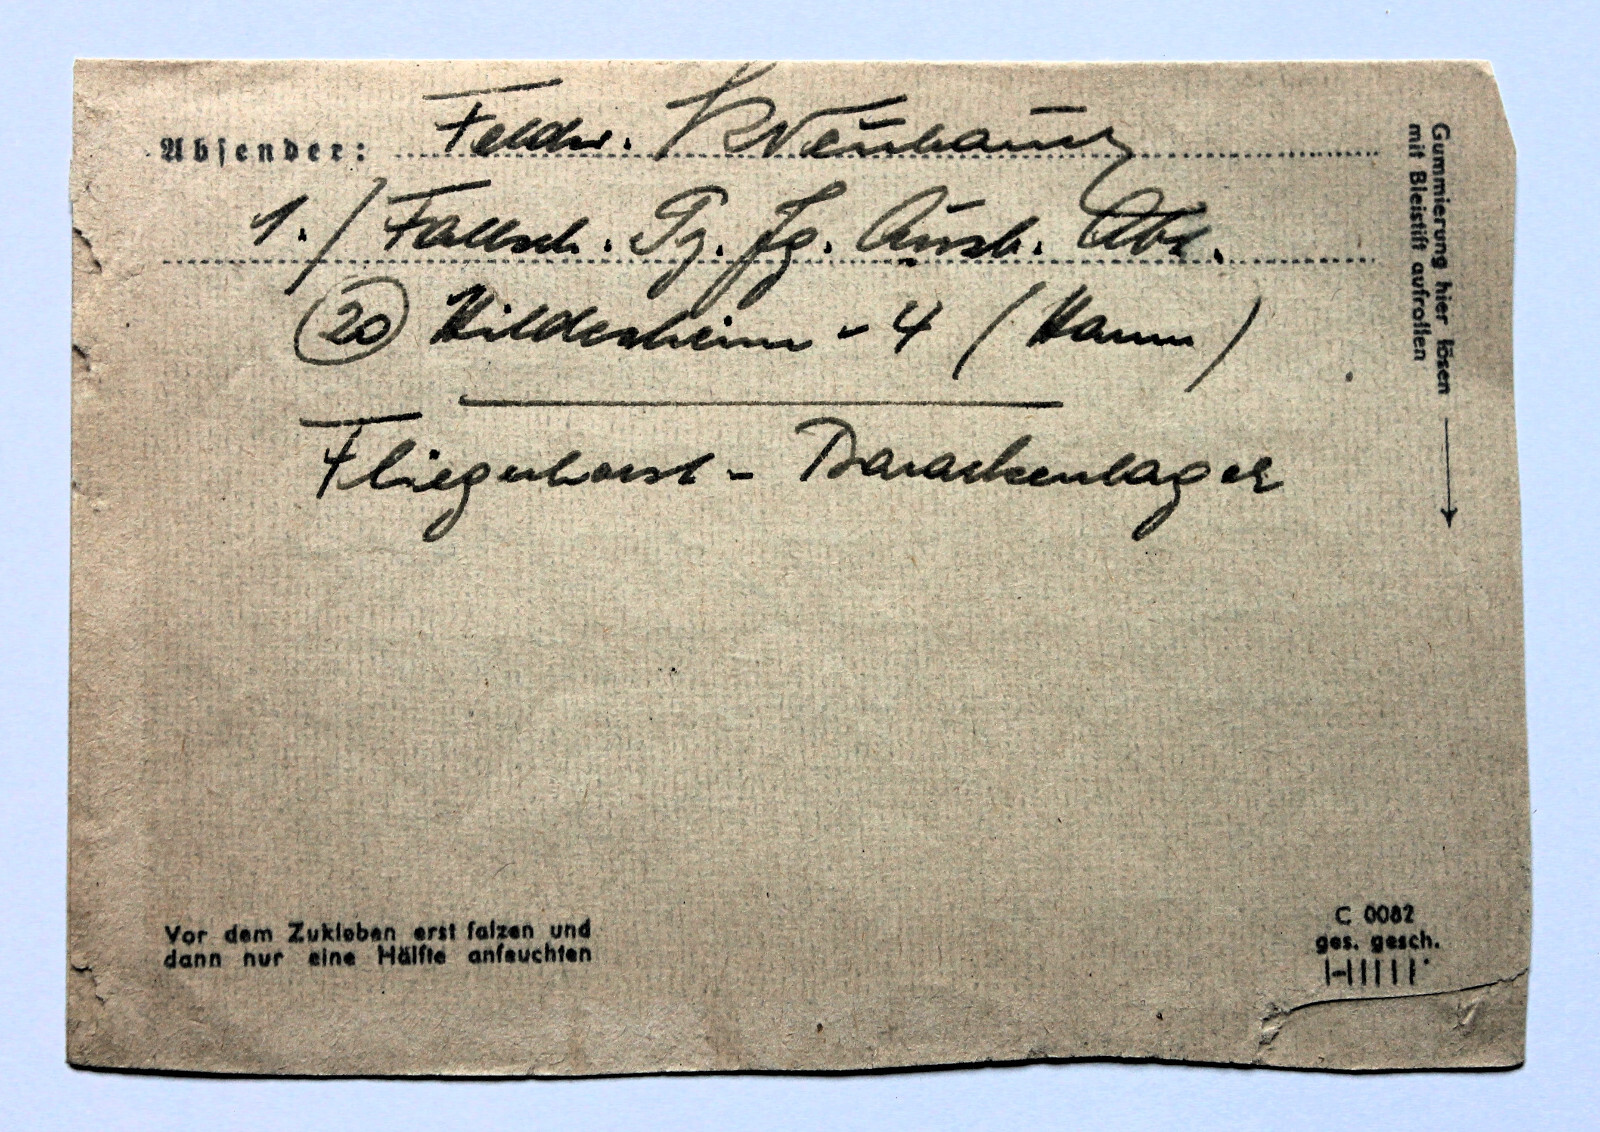 Absender: Feldw. Neubauer
1./Fallsch. Pz. Jg. Ausb. Abt.
20 Hildesheim - 4 (Hann)
Fliegerhorst - Barackenlager
Gummierung hier lösen
mit Bleistift aufrollen
Vor dem Zukleben erst falzen und
dann nur eine Hälfte anfeuchten
C 0082
ges. gesch.